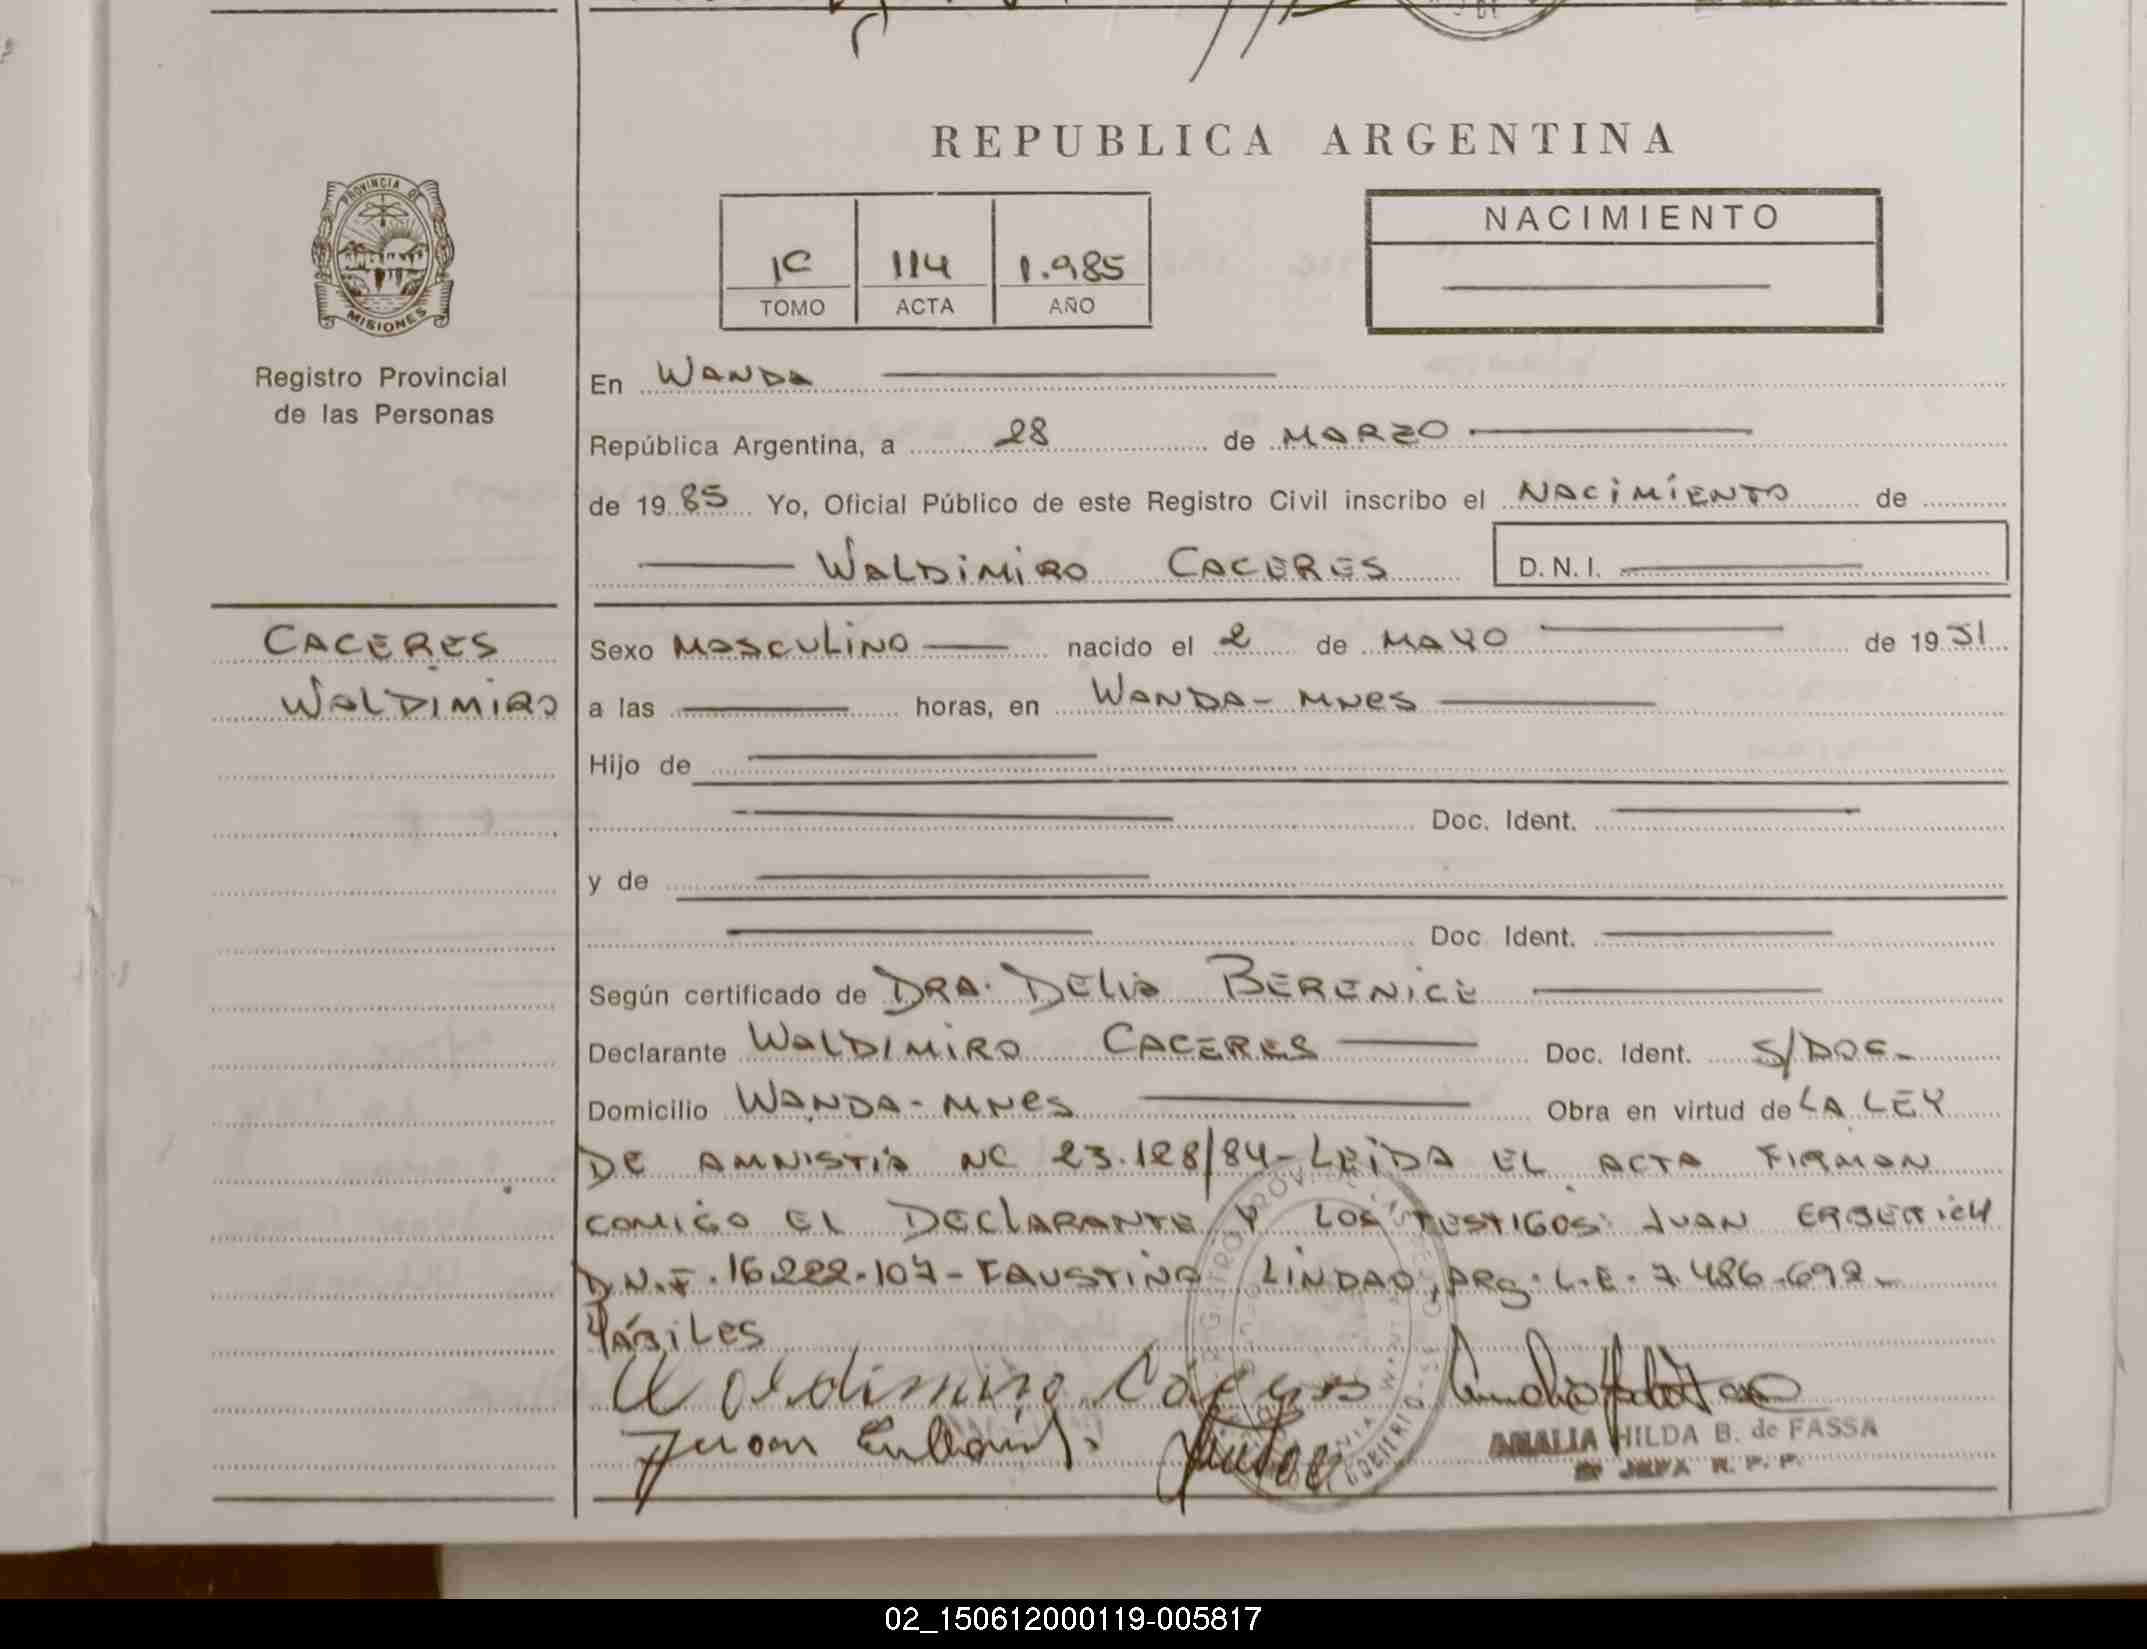 REPUBLICA ARGENTINA
PROVINCIA DE
MISIONES
Registro Provincial
de las Personas
1C 114 1.985
TOMO ACTA AÑO
NACIMIENTO
En WANDA
República Argentina, a 28 de MARZO
de 1985 Yo, Oficial Público de este Registro Civil inscribo el NACIMIENTO de
WALDIMIRO CACERES D.N.I.
CACERES
WALDIMIRO
Sexo MASCULINO nacido el 2 de MAYO de 19
a las horas, en WANDA - MNES
Hijo de
Doc. Ident.
y de
Doc. Ident.
Según certificado de DRA. DELIA BERENICE
Declarante WALDIMIRO CACERES Doc. Ident. S/DOC.
Domicilio WANDA - MNES Obra en virtud de LA LEY
DE AMNISTIA NC 23.128/84 - LEIDA EL ACTA FIRMAN
COMIGO EL DECLARANTE Y LOS TESTIGOS: JUAN
D.N.I. 16.222.107 - FAUSTINO LINDAO, ARG. L.E. 7.486.692 -
HÁBILES
Waldimiro Caceres
Juan
AMALIA HILDA B. de FASSA
JEFA R. P. P.
02_150612000119-005817